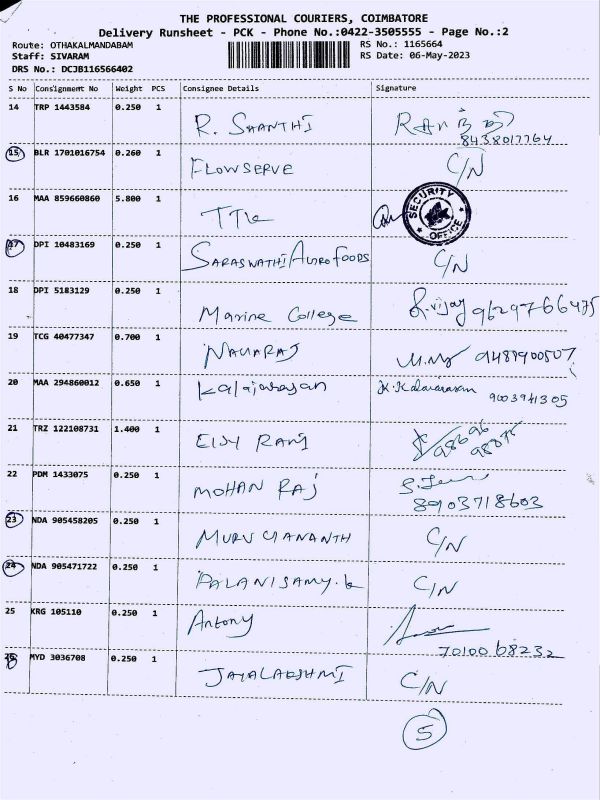 THE PROFESSIONAL COURIERS, COIMBATORE
Delivery Runsheet - PCK - Phone No.:0422-3505555 - Page No.:2
Route: OTHAKALMANDABAM RS No.: 1165664
Staff: SIVARAM RS Date: 06-May-2023
DRS No.: DCJB116566402
S No Consignment No Weight PCS Consignee Details Signature
14 TRP 1443584 0.250 1 R. SHANTHI
8438017764
15 BLR 1701016754 0.260 1 FLOWSERVE C/N
16 MAA 859660860 5.800 1 SECURITY OFFICE
17 DPI 10483169 0.250 1 SARASWATHI AURO FOODS C/N
18 DPI 5183129 0.250 1 Marine College R.vijay 9629766475
19 TCG 40477347 0.700 1 NAGARAJ
20 MAA 294860012 0.650 1 9003941305
21 TRZ 122108731 1.400 1
22 PDM 1433075 0.250 1 MOHAN RAJ 8903718603
23 NDA 905458205 0.250 1 MURUGANANTH C/N
24 NDA 905471722 0.250 1 PALANISAMY.K C/N
25 KRG 105110 0.250 1 Antony
7010068232
26 MYD 3036708 0.250 1 JAYALAKSHMI C/N
5